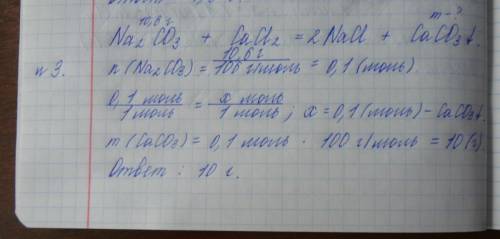 10,6 г m - ?
Na₂CO₃ + CaCl₂ = 2 NaCl + CaCO₃↓.
n 3. n (Na₂CO₃) = 10,6 г / 106 г/моль = 0,1 (моль)
0,1 моль / 1 моль = x моль / 1 моль ; x = 0,1 (моль) - CaCO₃↓.
m (CaCO₃) = 0,1 моль · 100 г/моль = 10 (г).
Ответ : 10 г.